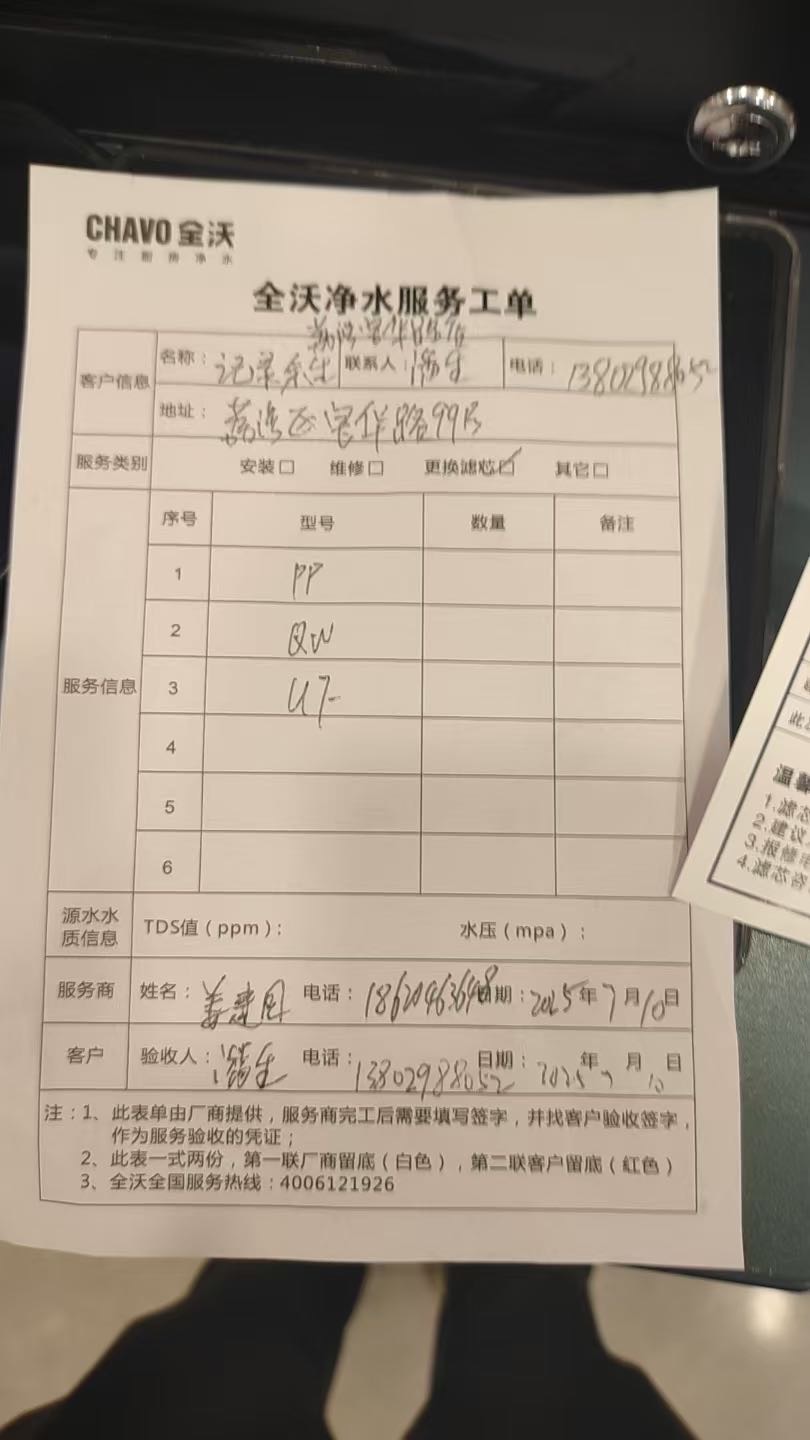 CHAVO 全沃
专注厨房净水
全沃净水服务工单
客户信息 名称： 联系人：潘生 电话：13802988052
地址：荔湾区 路99号
服务类别 安装□ 维修□ 更换滤芯☑ 其它□
服务信息 序号 型号 数量 备注
1 PP
2 QW
3 UF
4
5
6
源水水质信息 TDS值（ppm）： 水压（mpa）：
服务商 姓名：姜建国 电话：18620463648 日期：2025年7月10日
客户 验收人：潘生 电话：13802988052 日期：2025年7月10日
注：1、此表单由厂商提供，服务商完工后需要填写签字，并找客户验收签字，
作为服务验收的凭证；
2、此表一式两份，第一联厂商留底（白色），第二联客户留底（红色）
3、全沃全国服务热线：4006121926
此
温馨
1.滤芯
2.建议
3.报修
4.滤芯咨